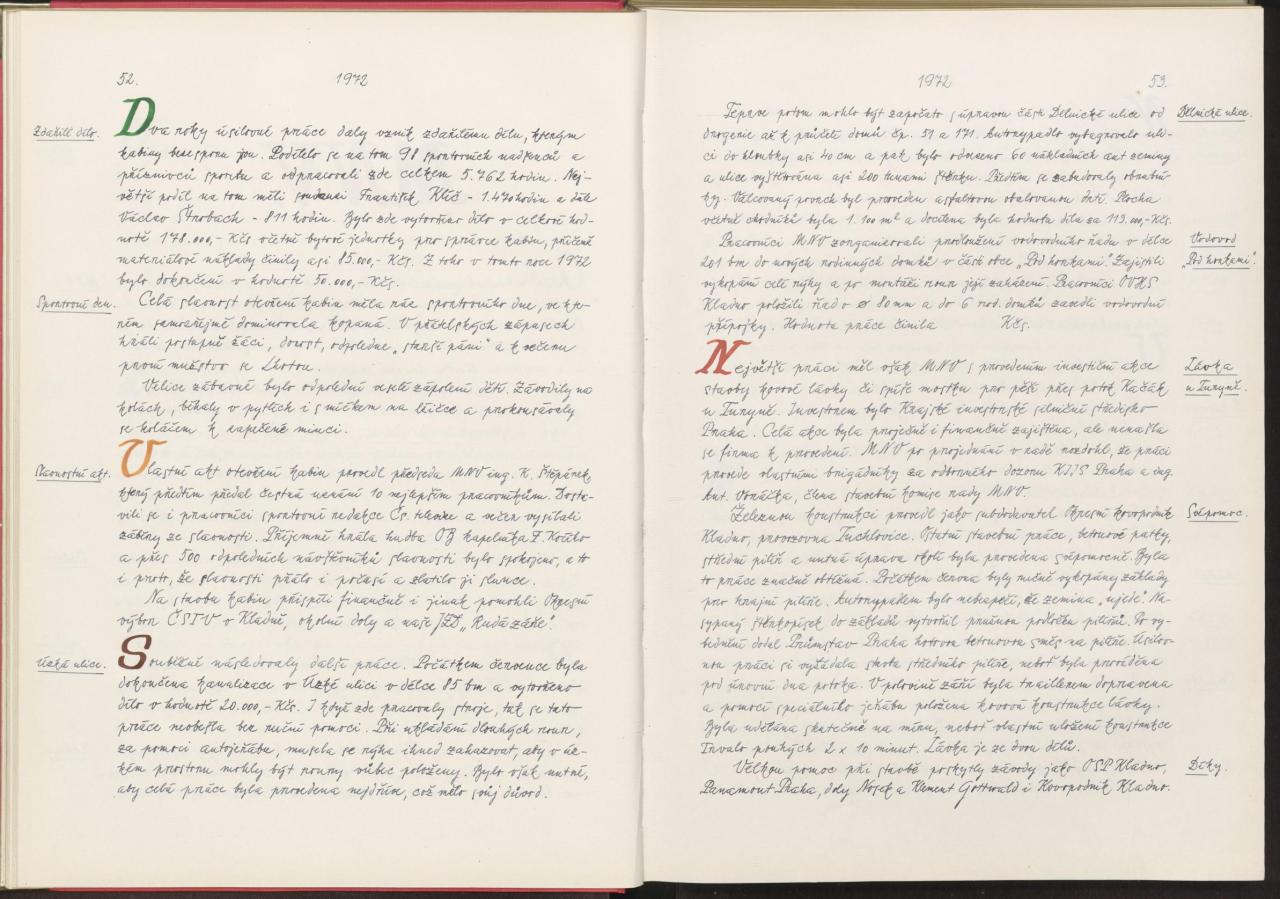 52.
1972
Zdařilé dílo.
Dva roky úsilovné práce daly vznik zdařilému dílu, kterým
kabiny bezesporu jsou. Podílelo se na tom 98 sportovních nadšenců a
příznivců sportu a odpracovali zde celkem 5.762 hodin. Nej-
větší podíl na tom měli soudruzi František Klíč - 1.470 hodin a dále
Václav Štrobach - 811 hodin. Bylo zde vytvořeno dílo v celkové hod-
notě 178.000,- Kčs včetně bytové jednotky pro správce kabin, přičemž
materiálové náklady činily asi 85.000,- Kčs. Z toho v tomto roce 1972
bylo dokončení v hodnotě 50.000,- Kčs.
Sportovní den.
Celá slavnost otevření kabin měla ráz sportovního dne, ve kte-
rém samozřejmě dominovala kopaná. V přátelských zápasech
hráli postupně žáci, dorost, odpoledne „starší páni" a k večeru
první mužstvo se Lhotou.
Velice zábavné bylo odpolední veselé zápolení dětí. Závodily na
kolách, běhaly v pytlích i s míčkem na lžičce a prokousávaly
se koláčem k zapečené minci.
Slavnostní akt.
Vlastní akt otevření kabin provedl předseda MNV ing. K. Štěpánek,
který předtím předal čestná uznání 10 nejlepším pracovníkům. Dosta-
vili se i pracovníci sportovní redakce Čs. televize a večer vysílali
záběry ze slavnosti. Příjemně hrála hudba OB kapelníka F. Koníčka
a přes 500 odpoledních návštěvníků slavnosti bylo spokojeno, a to
i proto, že slavnosti přálo i počasí a zlatilo ji slunce.
Na stavbu kabin přispěli finančně i jinak pomohli Okresní
výbor ČSTV v Kladně, okolní doly a naše JZD „Rudá záře".
Úzká ulice.
Souběžně následovaly další práce. Počátkem července byla
dokončena kanalizace v Úzké ulici v délce 85 bm a vytvořeno
dílo v hodnotě 20.000,- Kčs. I když zde pracovaly stroje, tak se tato
práce neobešla bez ruční pomoci. Při ukládání dlouhých rour,
za pomoci autojeřábu, musela se rýha ihned zahazovat, aby v úz-
kém prostoru mohly být roury vůbec položeny. Bylo však nutné,
aby celá práce byla provedena nejdříve, což mělo svůj důvod.
1972
53.
Dělnická ulice.
Teprve potom mohlo být započato s úpravou části Dělnické ulice od
drogerie až k průčelí domů čp. 51 a 171. Autorypadlo vybagrovalo uli-
ci do hloubky asi 40 cm a pak bylo odvezeno 60 nákladních aut zeminy
a ulice vyštěrována asi 200 tunami štěrku. Předtím se zabudovaly obrubní-
ky. Válcovaný povrch byl proveden asfaltovou obalovanou drtí. Plocha
včetně chodníků byla 1.100 m² a docílena byla hodnota díla za 113.000,- Kčs.
Vodovod
„Pod horkami".
Pracovníci MNV zorganizovali prodloužení vodovodního řadu v délce
201 bm do nových rodinných domků v části obce „Pod horkami". Zajistili
vykopání celé rýhy a po montáži rour její zaházení. Pracovníci OVHS
Kladno položili řad o ø 80 mm a do 6 rod. domků zavedli vodovodní
přípojky. Hodnota práce činila Kčs.
Lávka
u Turyně.
Největší práci měl však MNV s provedením investiční akce
stavby kovové lávky či spíše mostku pro pěší přes potok Kačák
u Turyně. Investorem bylo Krajské investorské silniční středisko
Praha. Celá akce byla projekčně i finančně zajištěna, ale nenašla
se firma k provedení. MNV po projednání v radě rozhodl, že práci
provede vlastními brigádníky za odborného dozoru KISS Praha a ing.
Ant. Vonáčka, člena stavební komise rady MNV.
Svépomoc.
Železnou konstrukci provedl jako subdodavatel Okresní kovopodnik
Kladno, provozovna Tuchlovice. Ostatní stavební práce, betonové patky,
střední pilíř a nutná úprava okolí byla provedena svépomocně. Byla
to práce značně obtížná. Počátkem června byly ručně vykopány základy
pro krajní pilíře. Autorypadlem bylo nebezpečí, že zemina „ujede". Na-
sypaný štěrkopísek do základů vytvořil pružnou podložku pilířů. Po vy-
bednění dodal Průmstav Praha hotovou betonovou směs na pilíře. Úsilov-
nou práci si vyžádala stavba středního pilíře, neboť byla prováděna
pod úrovní dna potoka. V polovině září byla trailerem dopravena
a pomocí speciálního jeřábu položena kovová konstrukce lávky.
Byla udělána skutečně na míru, neboť vlastní uložení konstrukce
trvalo pouhých 2 x 10 minut. Lávka je ze dvou dílů.
Díky.
Velkou pomoc při stavbě poskytly závody jako OSP Kladno,
Panamont Praha, doly Nosek a Klement Gottwald i Kovopodnik Kladno.